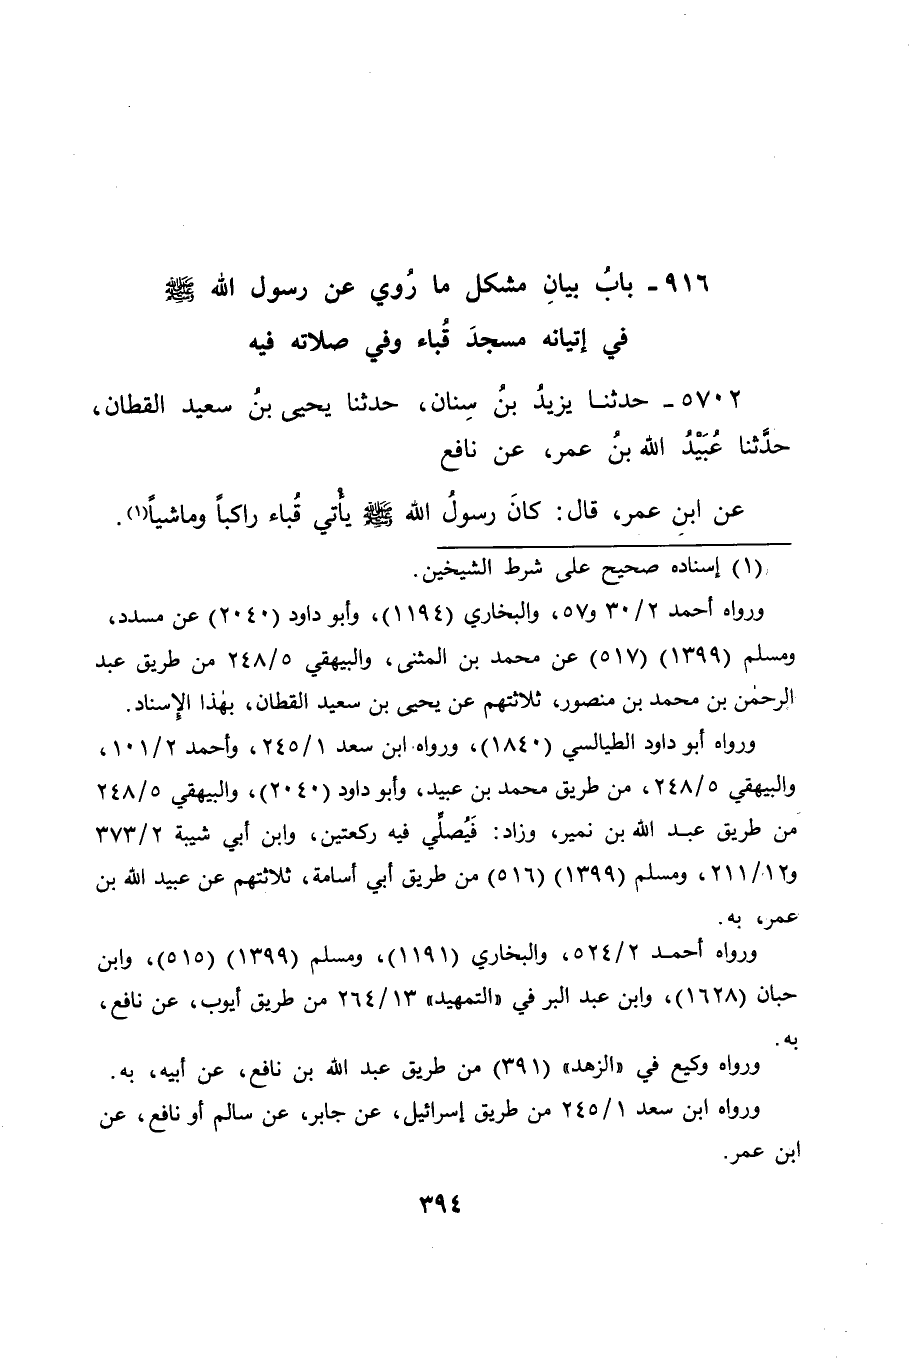 ٩١٦ـ بابُ بيانِ مشكل ما رُوي عن رسول الله ﷺ
في إتيانه مسجدَ قُباء وفي صلاته فيه
٥٧٠٢ـ حدثنا يزيدُ بنُ سِنان، حدثنا يحيى بنُ سعيد القطان،
حدَّثنا عُبَيْدُ الله بنُ عمر، عن نافع
عن ابنِ عمر، قال: كانَ رسولُ الله ﷺ يأْتي قُباء راكباً وماشياً(١).
(١) إسناده صحيح على شرط الشيخين.
ورواه أحمد ٣٠/٢ و٥٧، والبخاري (١١٩٤)، وأبو داود (٢٠٤٠) عن مسدد،
ومسلم (١٣٩٩) (٥١٧) عن محمد بن المثنى، والبيهقي ٢٤٨/٥ من طريق عبد
الرحمٰن بن محمد بن منصور، ثلاثتهم عن يحيى بن سعيد القطان، بهٰذا الإِسناد.
ورواه أبو داود الطيالسي (١٨٤٠)، ورواه ابن سعد ٢٤٥/١، وأحمد ١٠١/٢،
والبيهقي ٢٤٨/٥، من طريق محمد بن عبيد، وأبو داود (٢٠٤٠)، والبيهقي ٢٤٨/٥
من طريق عبد الله بن نمير، وزاد: فَيُصلِّي فيه ركعتين، وابن أبي شيبة ٣٧٣/٢
و٢١١/١٢، ومسلم (١٣٩٩) (٥١٦) من طريق أبي أسامة، ثلاثتهم عن عبيد الله بن
عمر، به.
ورواه أحمد ٥٢٤/٢، والبخاري (١١٩١)، ومسلم (١٣٩٩) (٥١٥)، وابن
حبان (١٦٢٨)، وابن عبد البر في «التمهيد» ٢٦٤/١٣ من طريق أيوب، عن نافع،
به.
ورواه وكيع في «الزهد» (٣٩١) من طريق عبد الله بن نافع، عن أبيه، به.
ورواه ابن سعد ٢٤٥/١ من طريق إسرائيل، عن جابر، عن سالم أو نافع، عن
ابن عمر.
٣٩٤